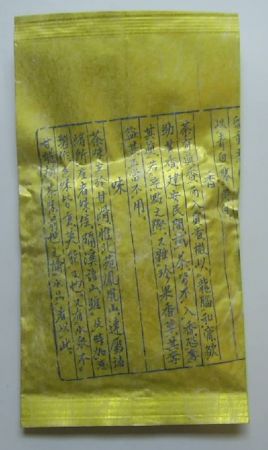 以青白勝
香
茶有真香而入貢者微以龍腦和膏欲
助其香建安民間試茶皆不入香恐奪
其真若烹點之際又雜珍果香草其奪
益甚正當不用
味
茶味主於甘滑惟北苑鳳凰山連屬諸
焙所產者味佳隔溪諸山雖及時加意
製作色味皆重莫能及也又有水泉不
甘能損茶味前世之論水品者以此